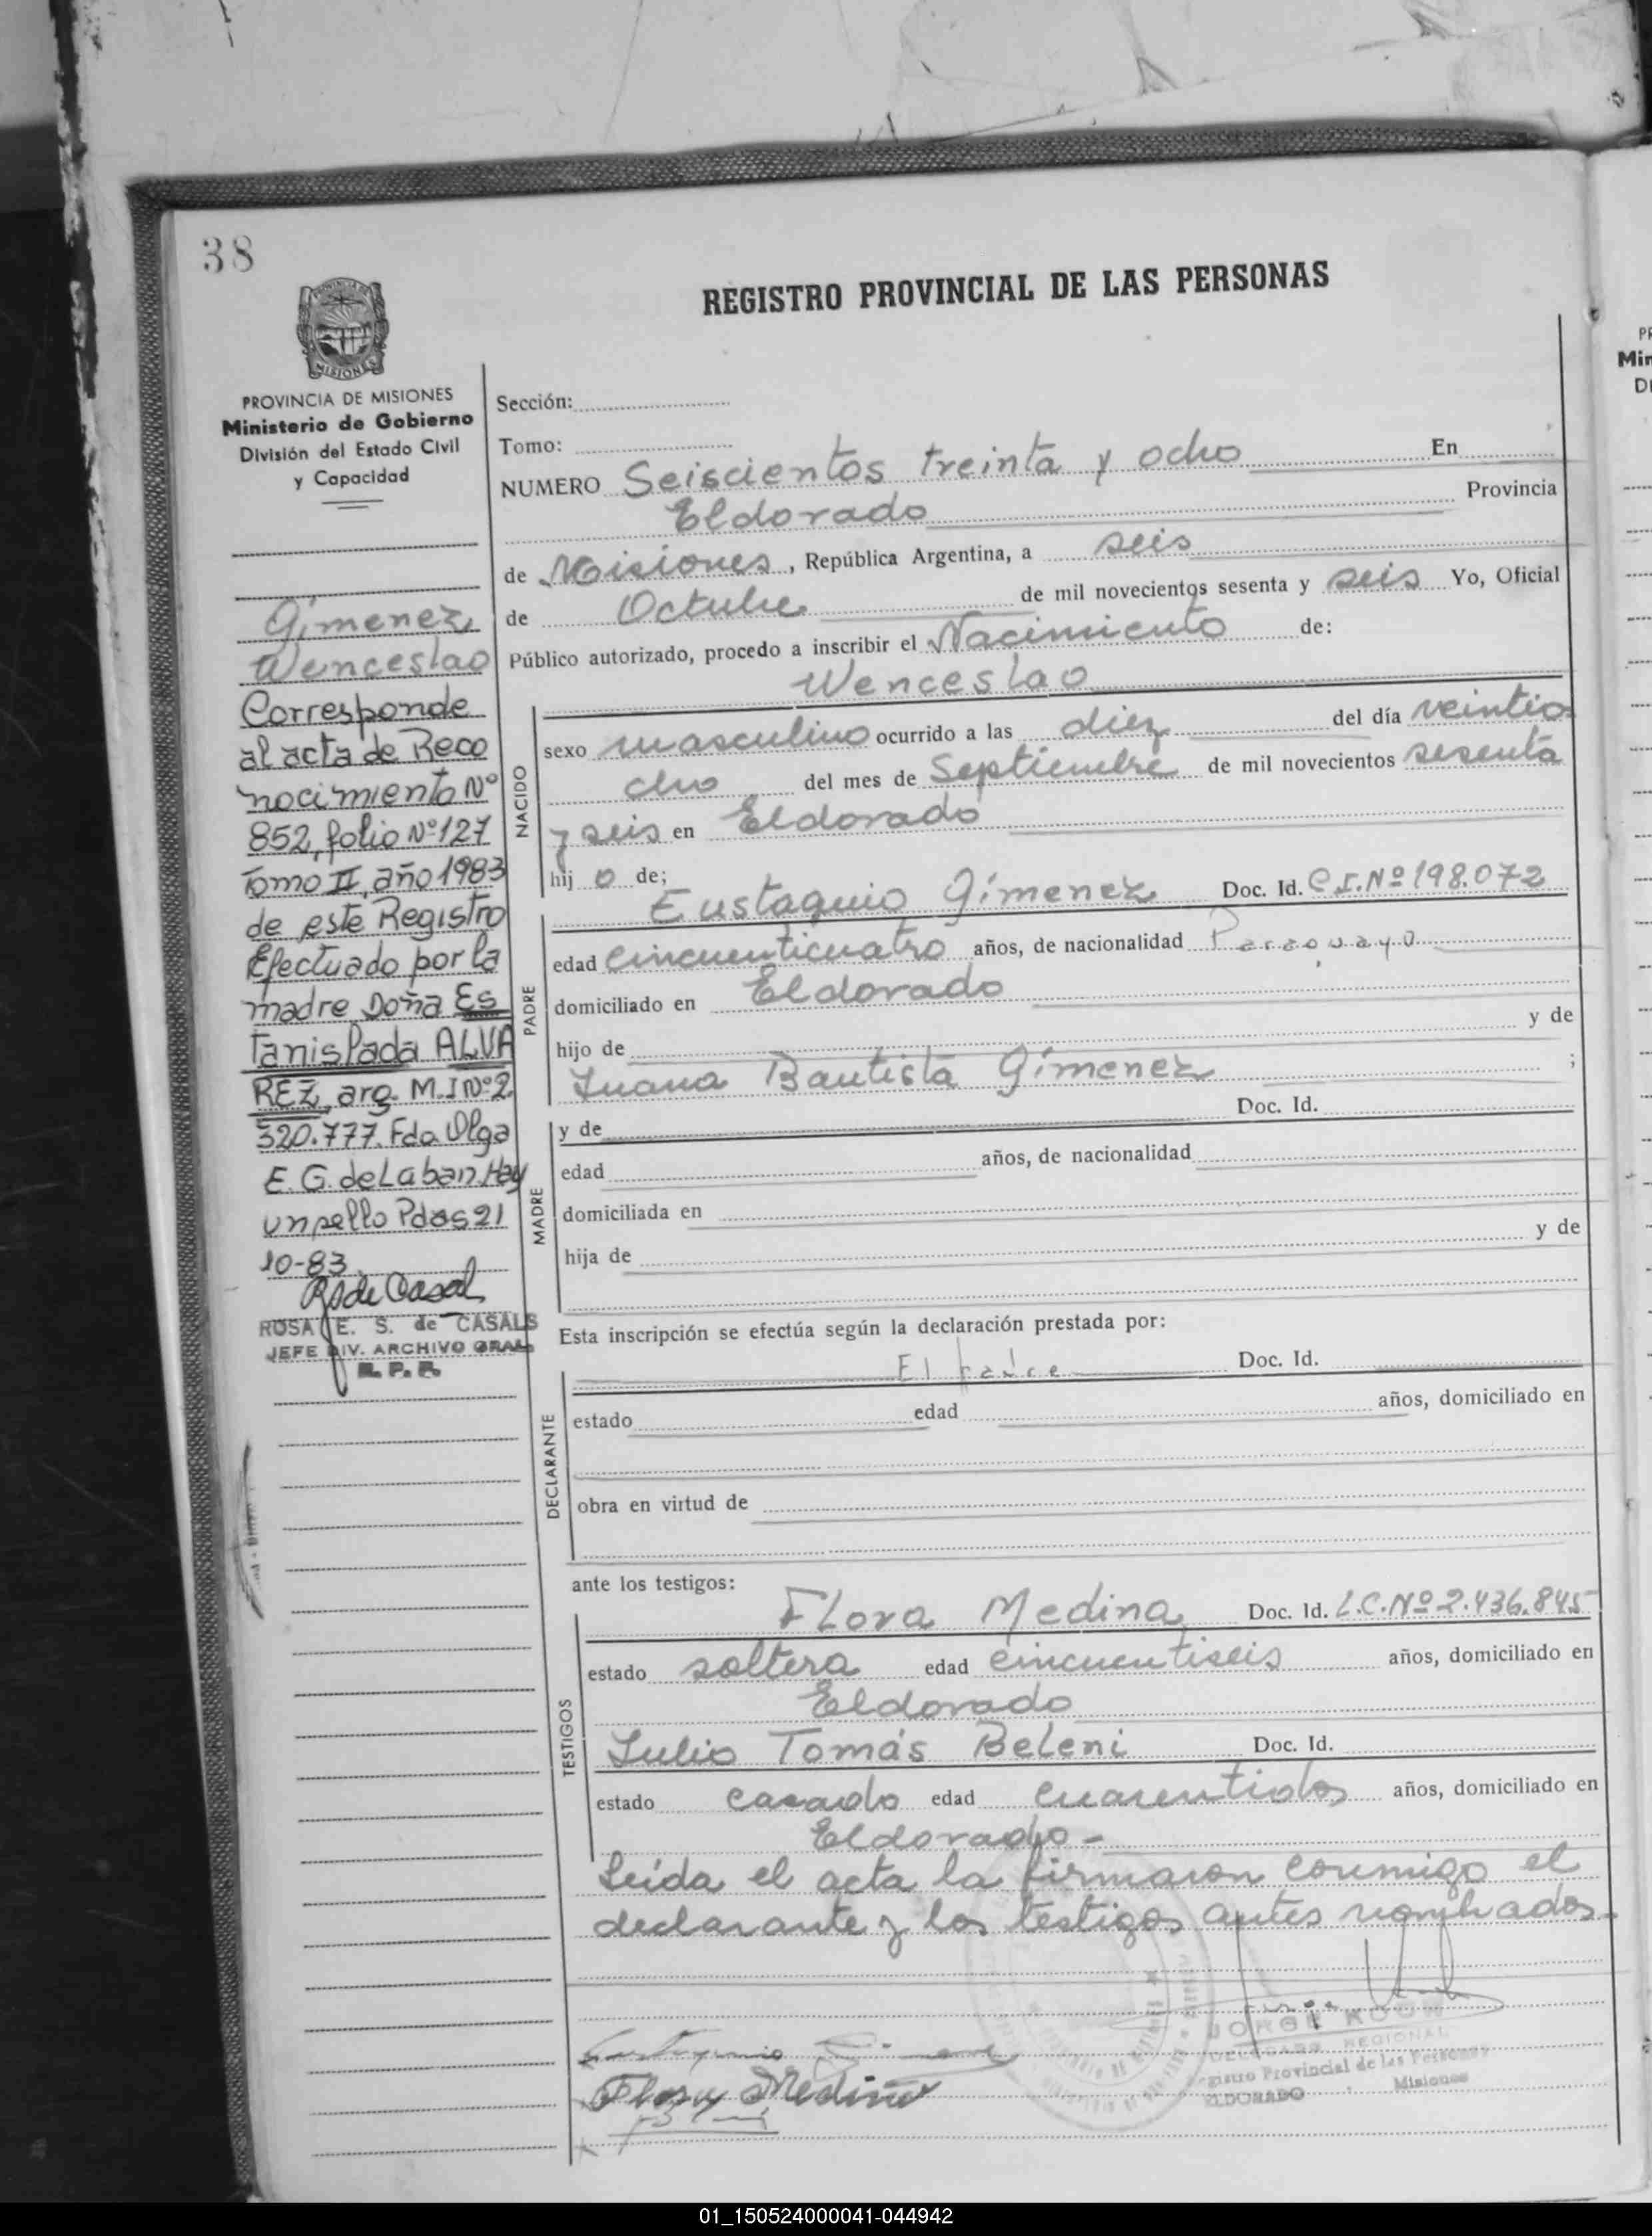 38
REGISTRO PROVINCIAL DE LAS PERSONAS
MISIONES
PROVINCIA DE MISIONES
Ministerio de Gobierno
División del Estado Civil
y Capacidad
Gimenez
Wenceslao
Corresponde
al acta de Reco
nocimiento Nº
852, folio Nº 127
Tomo II, año 1983
de este Registro
Efectuado por la
madre Doña Es
tanislada ALVA
REZ, arg. M.I Nº 2.
520.777. Fdo. Olga
E. G. de Laban. Hay
un sello Pdas 21
10-83.
ROSA E. S. de CASALS
JEFE DIV. ARCHIVO GRAL
R. P. P.
Sección:
Tomo:
NUMERO Seiscientos treinta y ocho En
Eldorado Provincia
de Misiones, República Argentina, a seis
de Octubre de mil novecientos sesenta y seis Yo, Oficial
Público autorizado, procedo a inscribir el Nacimiento de:
Wenceslao
NACIDO
sexo masculino ocurrido a las diez del día veintio
cho del mes de Septiembre de mil novecientos sesenta
y seis en Eldorado
hij o de;
Eustaquio Gimenez Doc. Id. C.I.Nº 198.072
PADRE
edad cincuenticuatro años, de nacionalidad Paraguayo
domiciliado en Eldorado
hijo de y de
Juana Bautista Gimenez ;
y de Doc. Id.
MADRE
edad años, de nacionalidad
domiciliada en
hija de y de
Esta inscripción se efectúa según la declaración prestada por:
El padre Doc. Id.
DECLARANTE
estado edad años, domiciliado en
obra en virtud de
ante los testigos:
Flora Medina Doc. Id. L.C.Nº 2.436.845
TESTIGOS
estado soltera edad cincuentiseis años, domiciliado en
Eldorado
Julio Tomás Beleni Doc. Id.
estado casado edad cuarentidos años, domiciliado en
Eldorado-
Leída el acta la firmaron conmigo el
declarante y los testigos antes nombrados.-
JORGE KOCH
DELEGADO REGIONAL
Registro Provincial de las Personas
ELDORADO - Misiones
Flora Medina
01_150524000041-044942